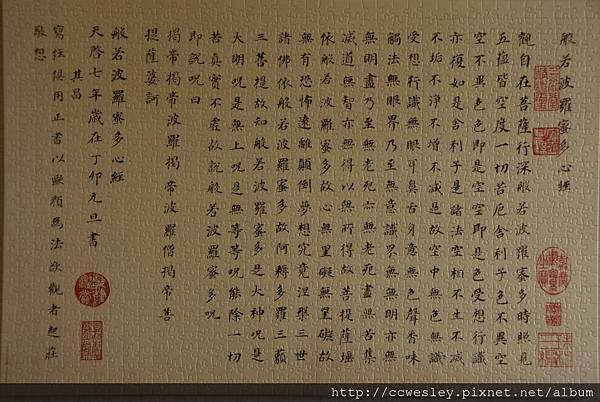 般若波羅蜜多心經
觀自在菩薩行深般若波羅蜜多時照見
五蘊皆空度一切苦厄舍利子色不異空
空不異色色即是空空即是色受想行識
亦復如是舍利子是諸法空相不生不滅
不垢不淨不增不減是故空中無色無
受想行識無眼耳鼻舌身意無色聲香味
觸法無眼界乃至無意識界無無明亦無
無明盡乃至無老死亦無老死盡無苦集
滅道無智亦無得以無所得故菩提薩埵
依般若波羅蜜多故心無罣礙無罣礙故
無有恐怖遠離顛倒夢想究竟涅槃三世
諸佛依般若波羅蜜多故阿耨多羅三藐
三菩提故知般若波羅蜜多是大神咒是
大明咒是無上咒是無等等咒能除一切
苦真實不虛故說般若波羅蜜多咒
即說咒曰
揭帝揭帝波羅揭帝波羅僧揭帝菩
提薩婆訶
般若波羅蜜多心經
天啓七年歲在丁卯元旦書
其昌
寫經俱用正書以歐顏為法欲觀者起莊
敬想
http://ccwesley.pixnet.net/album